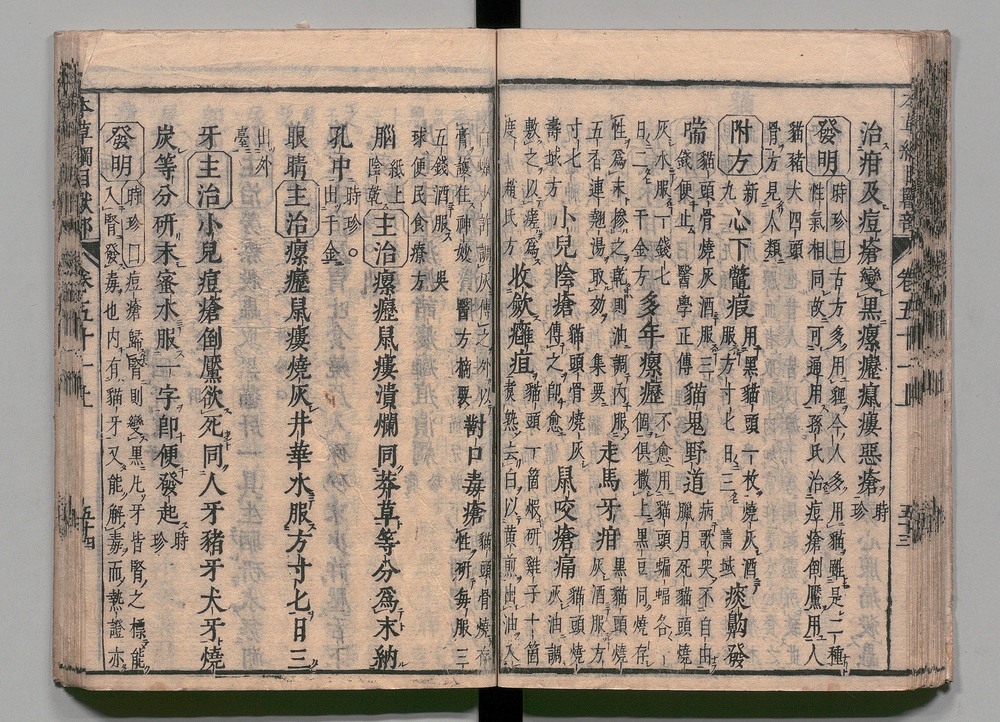 治疳及痘瘡變黑瘰癧鼠瘻惡瘡時珍
發明時珍曰古方多用貍今人多用貓雖是二種
性氣相同故可通用孫氏治痘瘡倒黶用人
貓豬犬四頭
骨方見人類
附方新九心下鼈瘕用黑貓頭一枚燒灰酒
服方寸匕日三壽域痰齁發
喘貓頭骨燒灰酒服三
錢便止醫學正傳貓鬼野道病歌哭不自由
臘月死貓頭燒
灰水服一錢匕
日二千金方多年瘰癧不愈用貓頭蝙蝠各一
個俱撒上黑豆同燒存
性爲末摻之乾則油調內服
五香連翹湯取効集要走馬牙疳黑貓頭燒
灰酒服方
寸匕壽域方小兒陰瘡貓頭骨燒灰
傅之即愈鼠咬瘡痛貓頭燒
灰油調
敷之以瘥爲
度趙氏方收斂癰疽貓頭一箇煅研雞子十箇
煮熟去白以黃煎出油入
白蠟少許調灰傅之外以
膏護住神妙醫方摘要對口毒瘡貓頭骨燒存
性研每服三
五錢酒服吳
球便民食療方
腦紙上陰乾主治瘰癧鼠瘻潰爛同莽草等分爲末納
孔中時珍。出千金
眼睛主治瘰癧鼠瘻燒灰井華水服方寸匕日三
出外臺
牙主治小兒痘瘡倒黶欲死同人牙豬牙犬牙燒
炭等分研末蜜水服一字即便發起時珍
發明時珍曰痘瘡歸腎則變黑凡牙皆腎之標能
入腎發毒也內有貓牙又能解毒而熱證亦
卷五十一上
五十三
卷五十一上
五十四